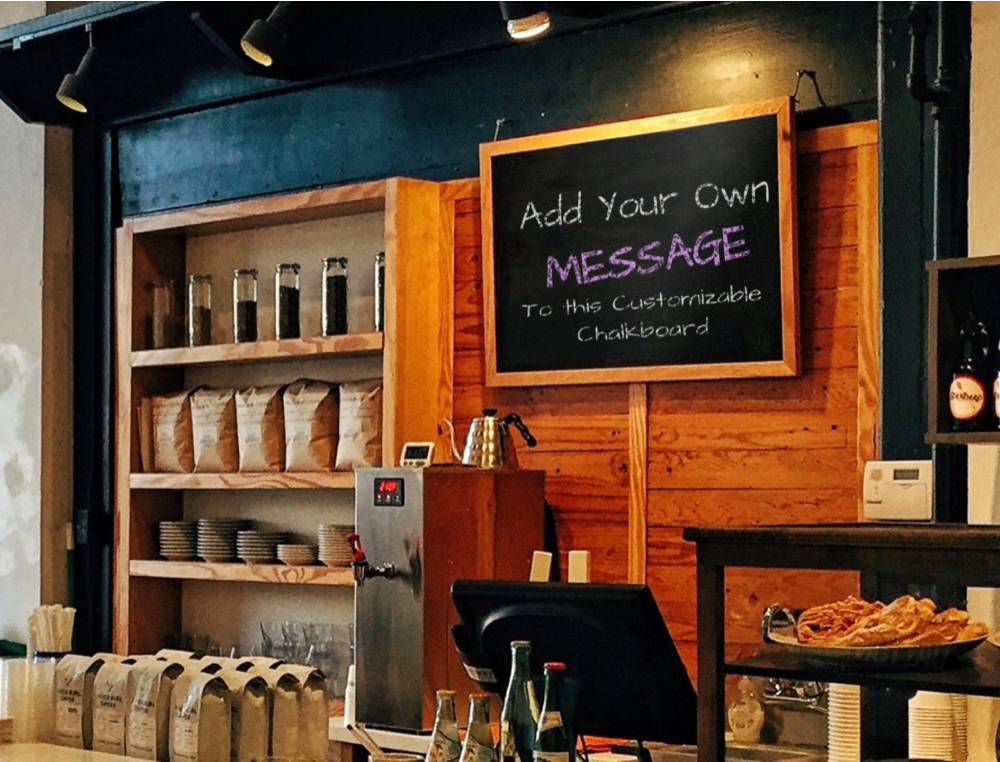 Add Your Own
MESSAGE
To this Customizable
Chalkboard